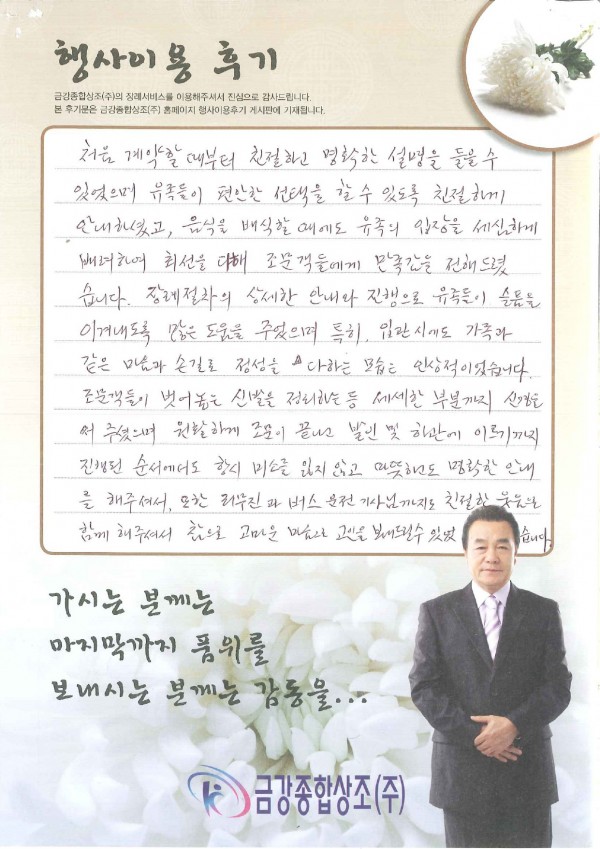 행사이용 후기
금강종합상조(주)의 장례서비스를 이용해주셔서 진심으로 감사드립니다.
본 후기문은 금강종합상조(주) 홈페이지 행사이용후기 게시판에 기재됩니다.
처음 계약할 때부터 친절하고 명확한 설명을 들을 수
있었으며 유족들이 편안한 선택을 할 수 있도록 친절하게
안내하셨고, 음식을 배식할 때에도 유족의 입장을 세심하게
배려하여 최선을 다해 조문객들에게 만족감을 전해드렸
습니다. 장례절차의 상세한 안내와 진행으로 유족들이 슬픔을
이겨내도록 많은 도움을 주었으며 특히, 입관시에도 가족과
같은 마음과 손길로 정성을 다하는 모습은 인상적이었습니다.
조문객들이 벗어놓은 신발을 정리하는 등 세세한 부분까지 신경을
써 주셨으며 원활하게 조문이 끝나고 발인 및 하관에 이르기까지
진행된 순서에서도 항시 미소를 잃지 않고 따뜻하고도 명확한 안내
를 해주셔서, 또한 리무진과 버스 운전 기사님까지도 친절한 웃음으로
함께 해주셔서 참으로 고마운 마음으로 고인을 보내드릴수 있었 습니다.
가시는 분께는
마지막까지 품위를
보내시는 분께는 감동을...
금강종합상조(주)